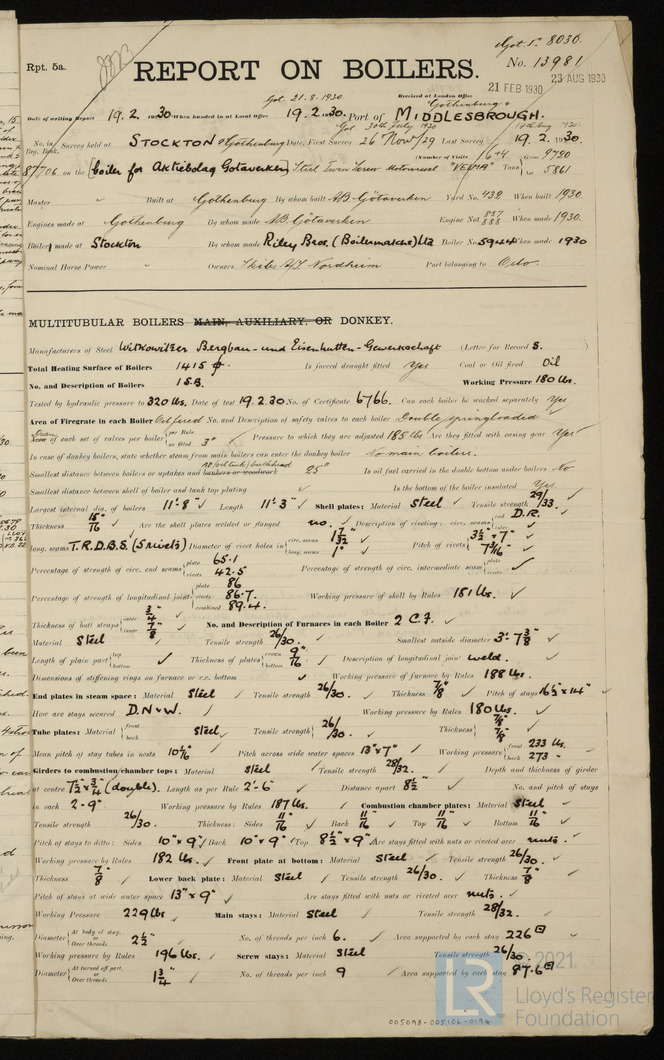 Got. Rpt. 8030.
Rpt. 5a.
No. 13981
REPORT ON BOILERS.
23 AUG 1930
21 FEB 1930
Received at London Office
Got. 21.8.1930
Gothenburg &
Date of writing Report 19.2.1930 When handed in at Local Office 19.2.1930. Port of MIDDLESBROUGH.
No. in Reg. Book. Survey held at STOCKTON & Gothenburg Date, First Survey 26 Nov/29 Last Survey 19.2.1930.
Got 30th July 1930 19th Aug 1930
(Number of Visits 6+4) Gross 9720
87706 on the [boiler for Aktiebolag Gotaverken] Steel Twin Screw Motorvessel "VELMA" Tons Net 5861
Master " Built at Gothenburg By whom built AB. Götaverken Yard No. 432 When built 1930
Engines made at Gothenburg By whom made AB. Götaverken Engine No. 887 888 When made 1930.
Boiler made at Stockton By whom made Riley Bros. (Boilermakers) Ltd Boiler No. 5944 When made 1930
Nominal Horse Power - Owners Skibs A/S Nordheim Port belonging to Oslo.
MULTITUBULAR BOILERS MAIN, AUXILIARY, OR DONKEY.
Manufacturers of Steel Witkowitzer Bergbau- und Eisenhutten-Gewerkschaft (Letter for Record S. )
Total Heating Surface of Boilers 1415 Is forced draught fitted Yes Coal or Oil fired Oil
No. and Description of Boilers 1 S.B. Working Pressure 180 lbs.
Tested by hydraulic pressure to 320 lbs. Date of test 19.2.30 No. of Certificate 6766. Can each boiler be worked separately Yes
Area of Firegrate in each Boiler Oil fired No. and Description of safety valves to each boiler Double springloaded
Area of each set of valves per boiler per Rule as fitted 3" Pressure to which they are adjusted 185 lbs Are they fitted with easing gear Yes
In case of donkey boilers, state whether steam from main boilers can enter the donkey boiler No main boilers.
Smallest distance between boilers or uptakes and bunkers or woodwork 25" Is oil fuel carried in the double bottom under boilers No
Smallest distance between shell of boiler and tank top plating ✓ Is the bottom of the boiler insulated Yes.
Largest internal dia. of boilers 11'-8" ✓ Length 11'-3" ✓ Shell plates: Material Steel ✓ Tensile strength 29/33. ✓
Thickness 15/16" ✓ Are the shell plates welded or flanged no. ✓ Description of riveting: circ. seams end D.R. inter. ✓
long. seams T.R.D.B.S. (5 rivets) Diameter of rivet holes in circ. seams 1 1/32" long. seams 1" ✓ Pitch of rivets 3½" 7" 7 3/16" ✓
Percentage of strength of circ. end seams plate 65.1 rivets 42.5 Percentage of strength of circ. intermediate seam plate rivets ✓
Percentage of strength of longitudinal joint plate 86 rivets 86.7. combined 89.4. Working pressure of shell by Rules 181 lbs. ✓
Thickness of butt straps outer 3/4" inner 7/8" ✓ No. and Description of Furnaces in each Boiler 2 C.F. ✓
Material Steel ✓ Tensile strength 26/30. ✓ Smallest outside diameter 3'-7 3/8" ✓
Length of plain part top bottom ✓ Thickness of plates crown bottom 9/16" ✓ Description of longitudinal joint weld. ✓
Dimensions of stiffening rings on furnace or c.c. bottom ✓ Working pressure of furnace by Rules 188 lbs. ✓
End plates in steam space: Material Steel ✓ Tensile strength 26/30. ✓ Thickness 7/8" ✓ Pitch of stays 16½" x 14" ✓
How are stays secured D.N & W. ✓ Working pressure by Rules 180 lbs. ✓
Tube plates: Material front back Steel ✓ Tensile strength 26/30. ✓ Thickness 7/8" 7/8" ✓
Mean pitch of stay tubes in nests ✓ Pitch across wide water spaces 13" x 7" ✓ Working pressure front 233 lbs. back 273 " ✓
Girders to combustion chamber tops: Material Steel ✓ Tensile strength 28/32. ✓ Depth and thickness of girder
at centre 7½" x 3/4" (double). Length as per Rule 2'-6" ✓ Distance apart 8½" ✓ No. and pitch of stays
in each 2-9" Working pressure by Rules 187 lbs. ✓ Combustion chamber plates: Material Steel ✓
Tensile strength 26/30. ✓ Thickness: Sides 11/16" ✓ Back 11/16" ✓ Top 11/16" ✓ Bottom 11/16" ✓
Pitch of stays to ditto: Sides 10" x 9" ✓ Back 10" x 9" ✓ Top 8½" x 9" ✓ Are stays fitted with nuts or riveted over nuts. ✓
Working pressure by Rules 182 lbs. ✓ Front plate at bottom: Material Steel ✓ Tensile strength 26/30. ✓
Thickness 7/8" ✓ Lower back plate: Material Steel ✓ Tensile strength 26/30. ✓ Thickness 7/8" ✓
Pitch of stays at wide water space 13" x 9" ✓ Are stays fitted with nuts or riveted over nuts. ✓
Working Pressure 229 lbs ✓ Main stays: Material Steel ✓ Tensile strength 28/32. ✓
Diameter At body of stay, or Over threads 2½" ✓ No. of threads per inch 6. ✓ Area supported by each stay 226 ✓
Working pressure by Rules 196 lbs. ✓ Screw stays: Material Steel ✓ Tensile strength 26/30. ✓
Diameter At turned off part, or Over threads 1¾" ✓ No. of threads per inch 9 ✓ Area supported by each stay 87.6
© 2021
LR
Lloyd's Register
Foundation
005098-005106-0194